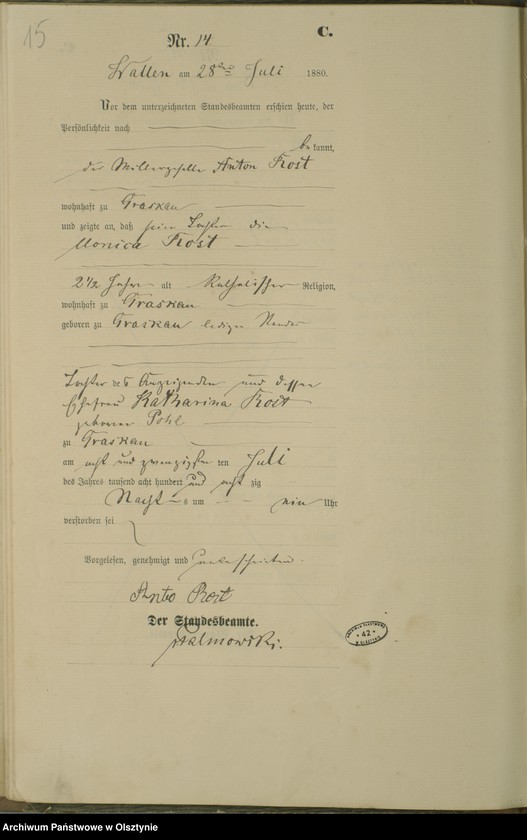 15
C.
Nr. 14
Wallen am 28ten Juli 1880.
Vor dem unterzeichneten Standesbeamten erschien heute, der
Persönlichkeit nach
bekannt,
der Müllergeselle Anton Rost
wohnhaft zu Graskau
und zeigte an, daß seine Tochter die
Monica Rost
2½ Jahre alt Katholischer Religion,
wohnhaft zu Graskau
geboren zu Graskau ledigen Standes
Tochter des Anzeigenden und dessen
Ehefrau Katharina Rost
geborenen Pohl
zu Graskau
am acht und zwanzigsten ten Juli
des Jahres tausend acht hundert und acht zig
Nachts um ein Uhr
verstorben sei
Vorgelesen, genehmigt und unterschrieben.
Anto Rost
Der Standesbeamte.
42
Archiwum Państwowe w Olsztynie